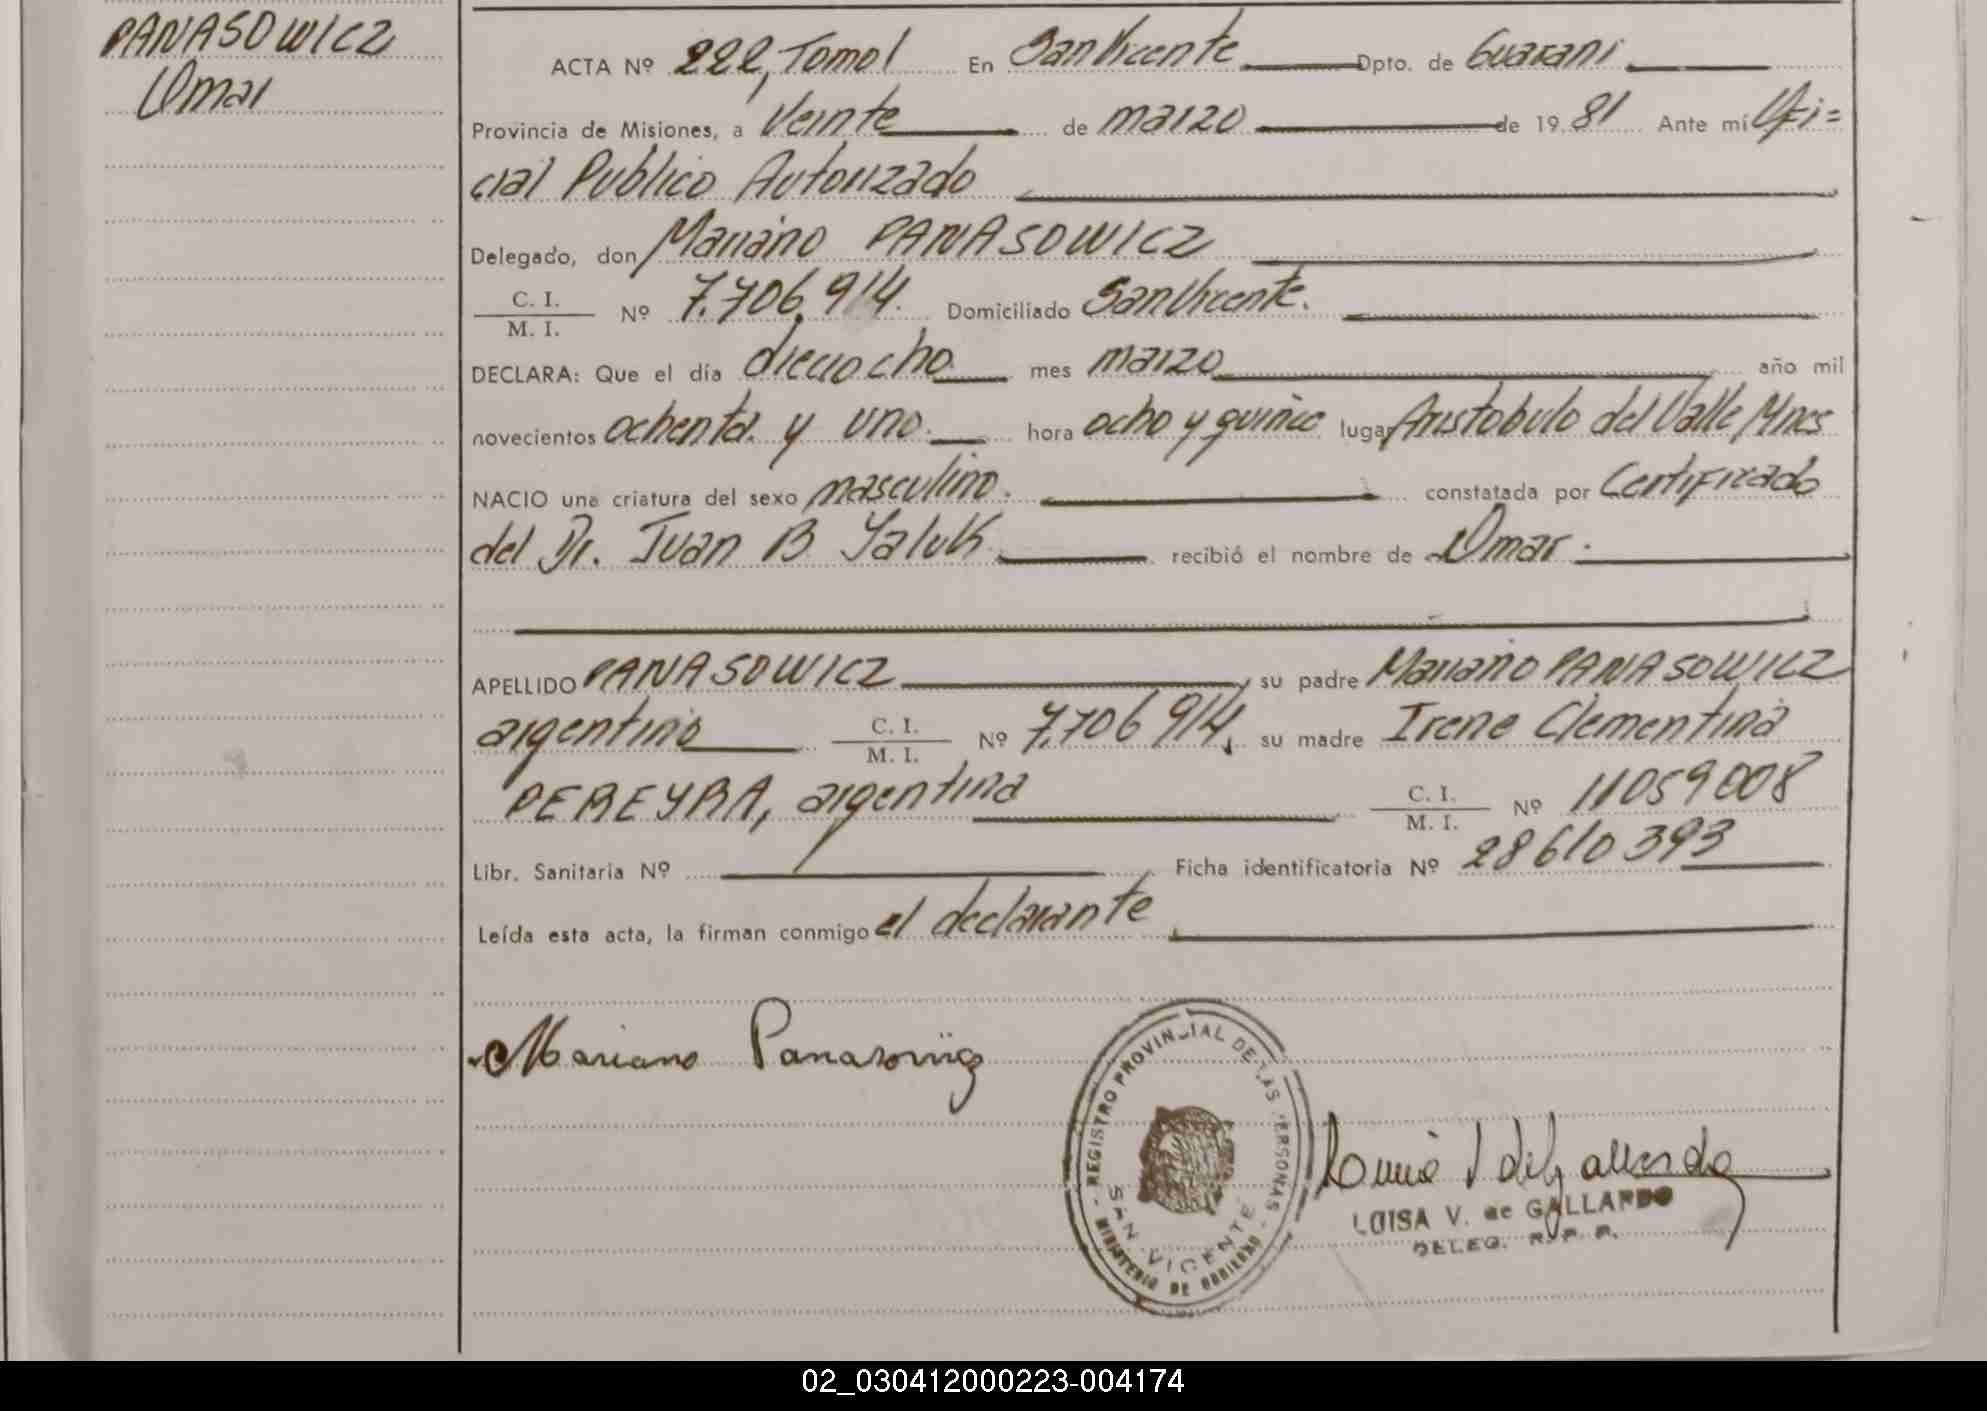 PANASOWICZ
Omar
ACTA Nº 222, Tomo I En San Vicente Dpto. de Guarani
Provincia de Misiones, a Veinte de marzo de 19 81 Ante mí Ofi=
cial Publico Autorizado
Delegado, don Mariano PANASOWICZ
C. I.
M. I.
Nº 7.706.914. Domiciliado San Vicente.
DECLARA: Que el día dieciocho mes marzo año mil
novecientos ochenta y uno. hora ocho y quince lugar Aristobulo del Valle Mnes
NACIO una criatura del sexo masculino. constatada por Certificado
del Dr. Juan B. Yaluk recibió el nombre de Omar.
APELLIDO PANASOWICZ, su padre Mariano PANASOWICZ
argentino C. I.
M. I. Nº 7.706 914, su madre Irene Clementina
PEREYRA, argentina C. I.
M. I. Nº 11059008
Libr. Sanitaria Nº Ficha identificatoria Nº 28610393
Leída esta acta, la firman conmigo el declarante
Mariano Panasowicz
REGISTRO PROVINCIAL DE LAS PERSONAS
SAN VICENTE
MINISTERIO DE GOBIERNO
LUISA V. de GALLARDO
DELEG. R. P. P.
02_030412000223-004174